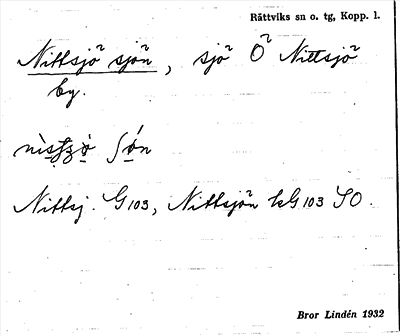 Rättviks sn o. tg, Kopp. l.
Nittsjö sjön, sjö Ö Nittsjö
by.
Nittsj. G103, Nittsjön kG103 SO.
Bror Lindén 1932